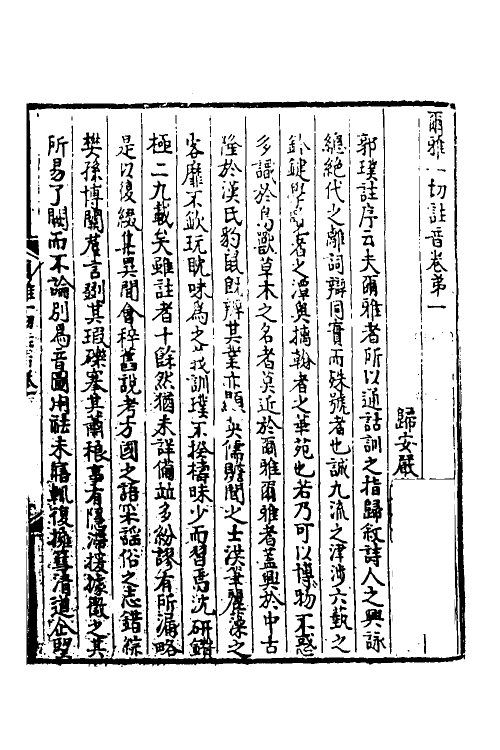 爾雅一切註音卷弟一
歸安嚴
郭璞註序云夫爾雅者所以通詁訓之指歸叙詩人之興詠
緫絶代之離詞辯同實而殊號者也誠九流之津涉六藝之
鈐鍵學覽者之潭奥摛翰者之華苑也若乃可以博物不惑
多識於鳥獸草木之名者莫近於爾雅爾雅者蓋興於中古
隆於漢氏豹鼠既辯其業亦顯英儒贍聞之士洪筆麗藻之
客靡不欽玩耽味爲之義訓璞不揆檮昧少而習焉沈研鑽
極二九載矣雖註者十餘然猶未詳備竝多紛謬有所漏略
是以復綴集異聞會稡舊說考方國之語采謠俗之志錯綜
樊孫博關羣言剟其瑕礫搴其蕭稂事有隱滯援據徵之其
所易了闕而不論别爲音圖用祛未寤輒復擁篲清道企望